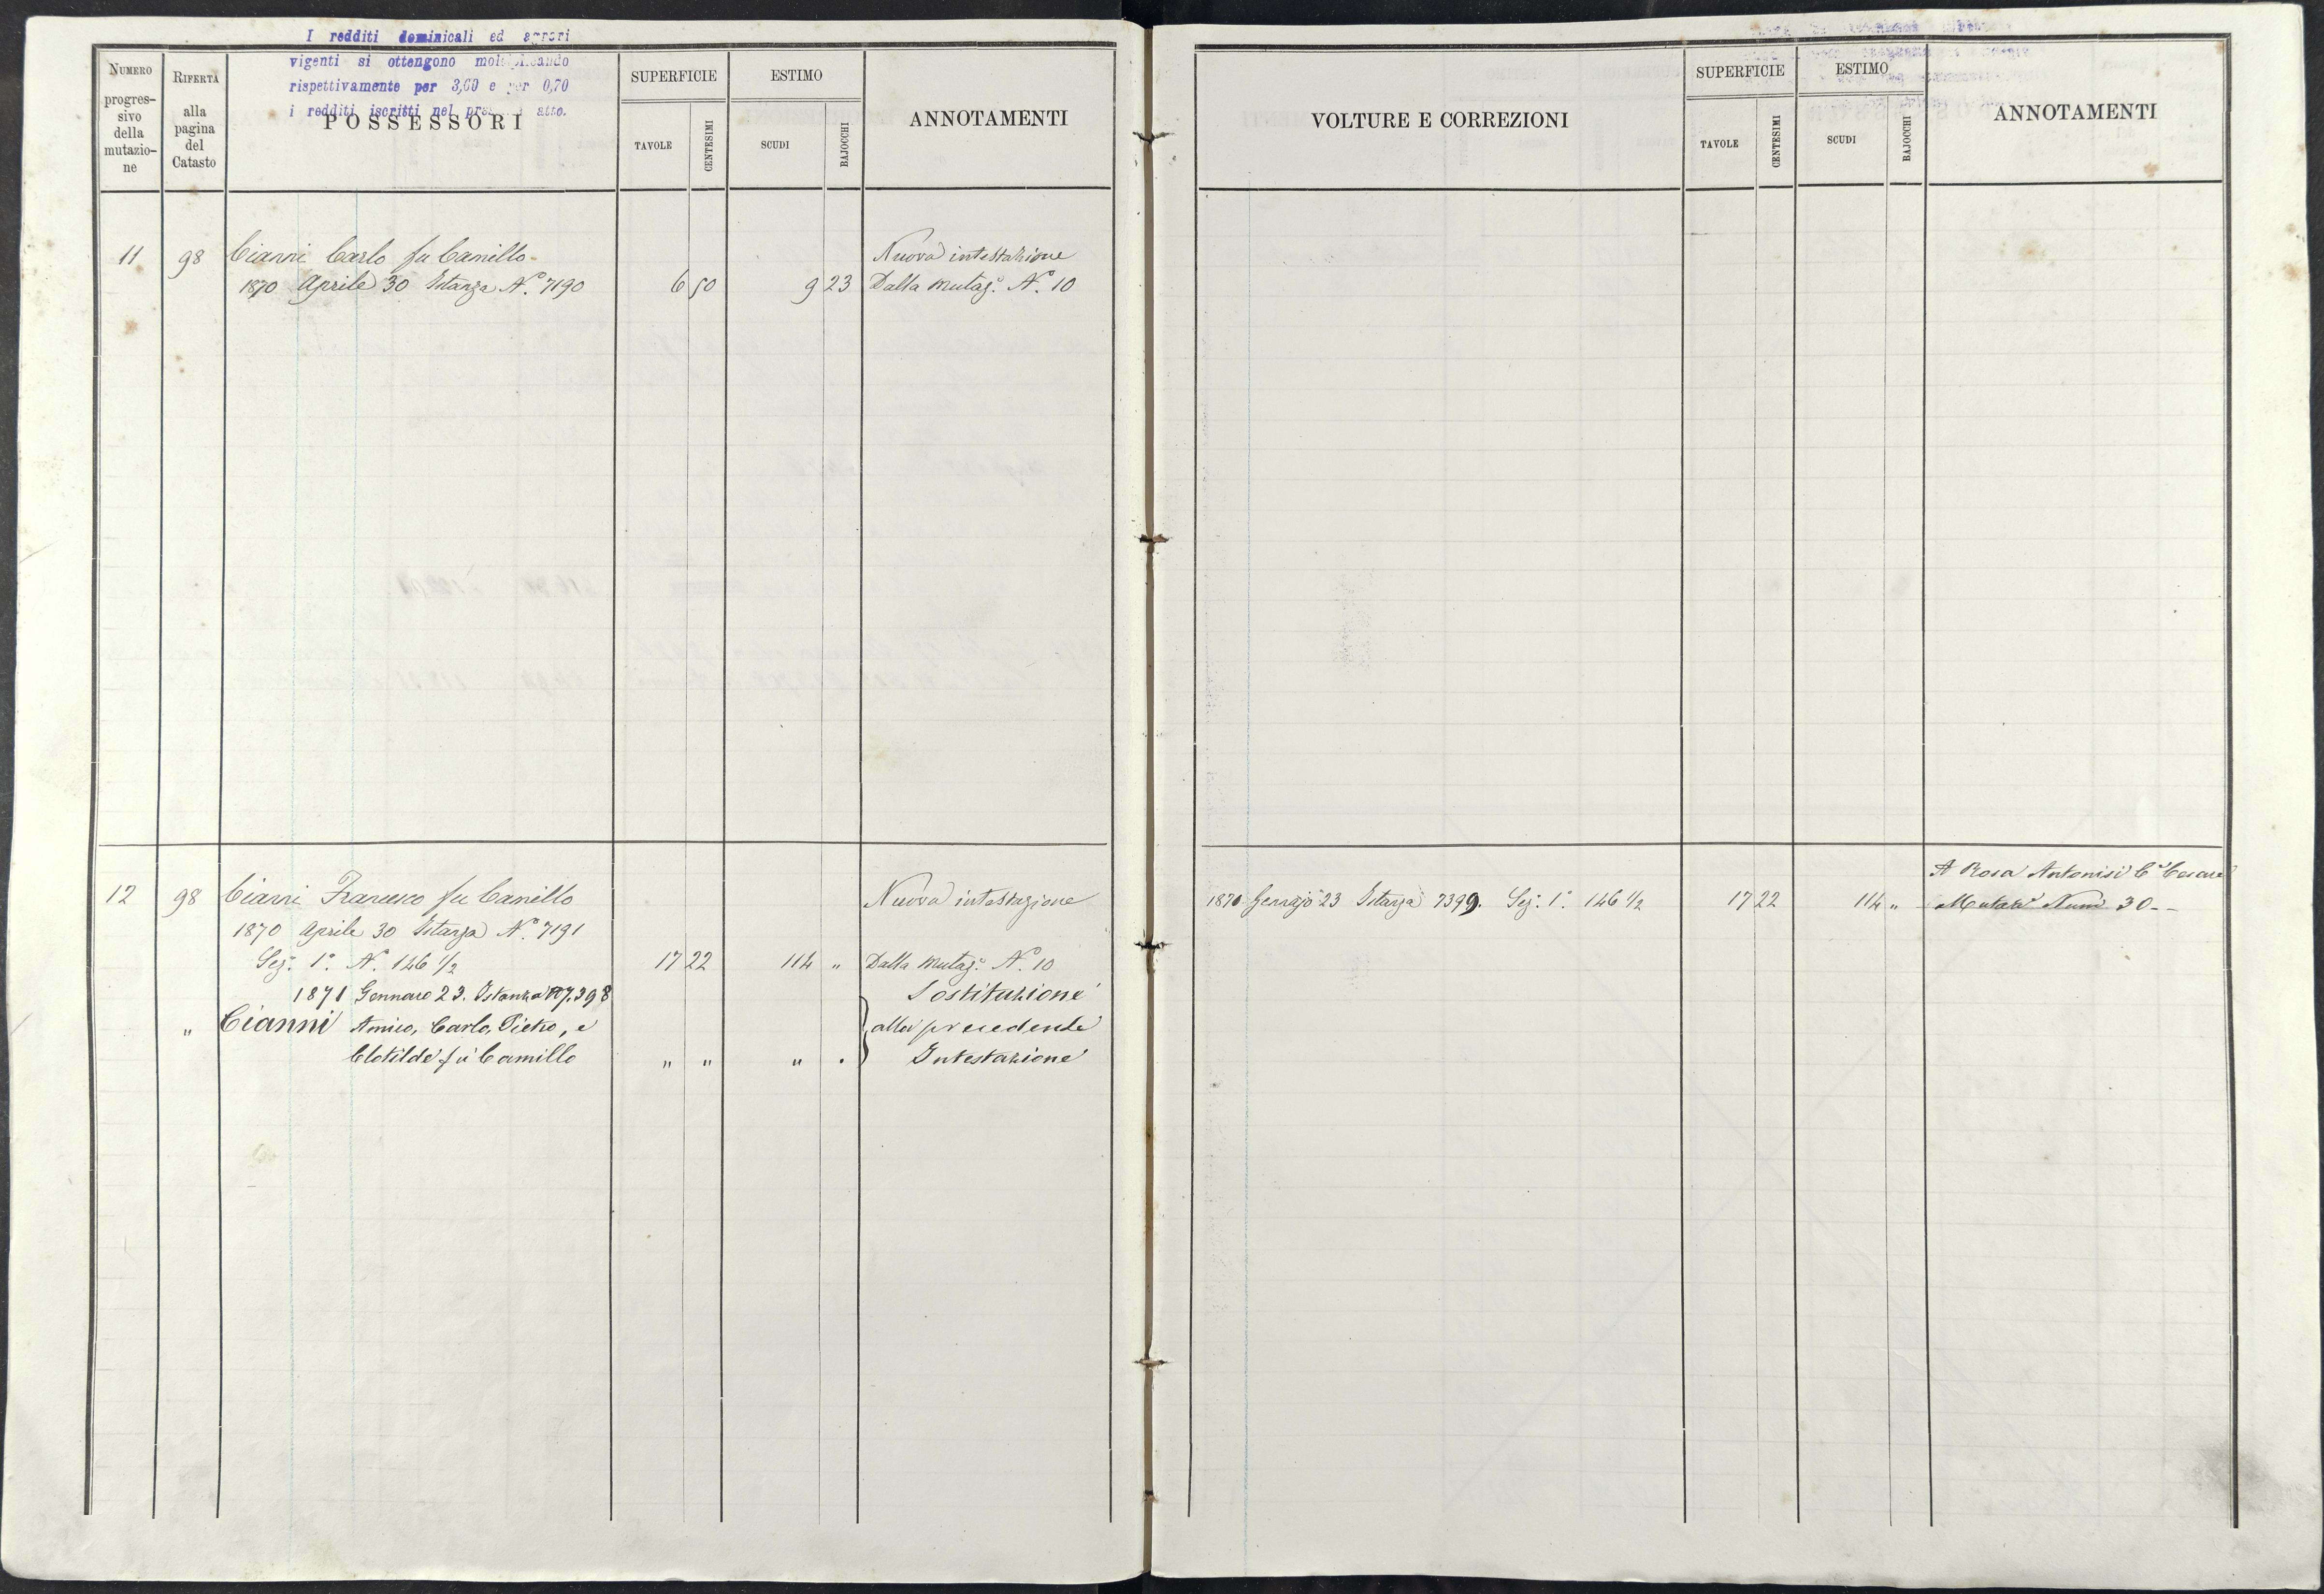 I redditi dominicali ed agrari
vigenti si ottengono moltiplicando
rispettivamente per 3,60 e per 0,70
i redditi iscritti nel atto.
NUMERO progressivo della mutazione
RIFERTA alla pagina del Catasto
POSSESSORI
SUPERFICIE
TAVOLE
CENTESIMI
ESTIMO
SCUDI
BAJOCCHI
ANNOTAMENTI
11 98 Cianni Carlo fu Camillo Nuova intestazione
1870 Aprile 30 Istanza N.° 7190 6 50 9 23 Dalla Mutaz.e N.° 10
12 98 Cianni Francesco fu Camillo Nuova intestazione
1870 Aprile 30 Istanza N.° 7191
Sez. 1.a N. 146 1/2 17 22 114 " Dalla Mutaz.e N.° 10
1871 Gennaro 23. Istanza N 7398 Sostituzione
" Cianni Amico, Carlo, Pietro, e alla precedente
Clotilde fu Camillo " " " . Intestazione
VOLTURE E CORREZIONI
SUPERFICIE
TAVOLE
CENTESIMI
ESTIMO
SCUDI
BAJOCCHI
ANNOTAMENTI
A Rosa Antonisi Cesare
1871 Gennajo 23 Istanza 7399. Sez. 1.a 146 1/2 17 22 114 " Mutaz Num 30